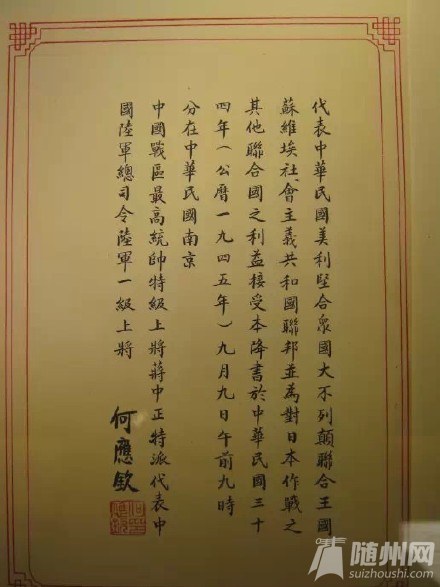 代表中華民國美利堅合衆國大不列顛聯合王國
蘇維埃社會主義共和國聯邦並為對日本作戰之
其他聯合國之利益接受本降書於中華民國三十
四年(公曆一九四五年)九月九日午前九時
分在中華民國南京
中國戰區最高統帥特級上將蔣中正特派代表中
國陸軍總司令陸軍一級上將
何應欽
随州网
suizhoushi.com